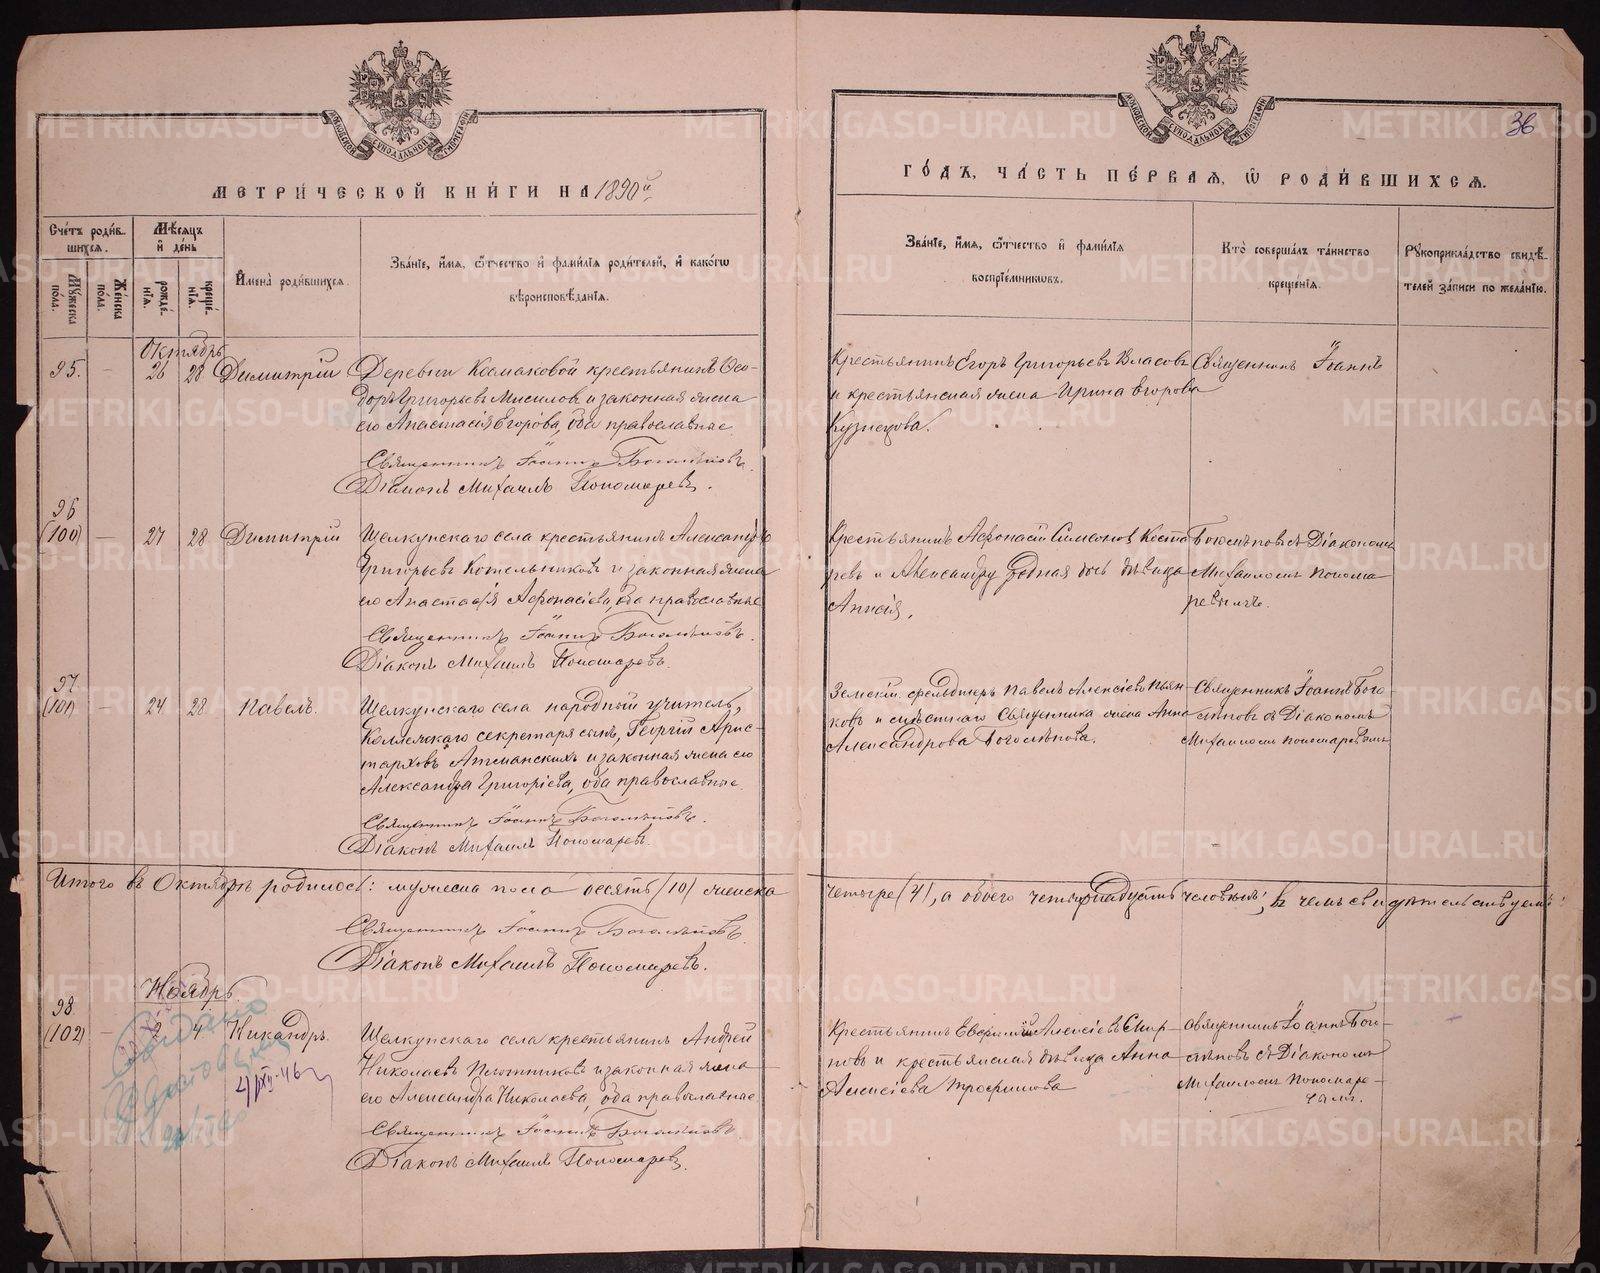 МЕТРИЧЕСКОЙ КНИГИ НА 1890й
ГОДЪ, ЧАСТЬ ПЕРВАЯ, Ѡ РОДИВШИХСЯ.
36
МОСКОВСКОЙ СУНОДАЛЬНОЙ ТИПОГРАФІИ
МОСКОВСКОЙ СУНОДАЛЬНОЙ ТИПОГРАФІИ
Счетъ родив-
шихся.
Мѣсяцъ
и день
Мужеска пола.
Женска пола.
рожде-
нія.
креще-
нія.
Имена родившихся.
Званіе, имя, ѿтчество и фамилія родителей, и какогѡ
вѣроисповѣданія.
Званіе, имя, ѿтчество и фамилія
воспріемниковъ.
Кто совершалъ таинство
крещенія.
Рукоприкладство свидѣ-
телей записи по желанію.
Октябрь
95. — 26 28 Димитрій
Деревни Космаковой крестьянинъ Ѳео-
доръ Григорьевъ Мисиловъ и законная жена
его Анастасія Егорова, оба православные
Священникъ Іоаннъ Боголѣповъ
Діаконъ Михаилъ Пономаревъ.
Крестьянинъ Егоръ Григорьевъ Власовъ
и крестьянская жена Ирина Егорова
Кузнецова.
Священникъ Іоаннъ
96
(100) — 27 28 Димитрій
Щелкунскаго села крестьянинъ Александръ
Григорьевъ Котельниковъ и законная жена
его Анастасія Афонасіева, оба православные
Священникъ Іоаннъ Боголѣповъ.
Діаконъ Михаилъ Пономаревъ.
Крестьянинъ Афонасій Симеоновъ Коста-
ревъ и Александру родная дочь дѣвица
Анисія.
Боголѣповъ съ Діакономъ
Михаиломъ Понома-
ревымъ.
97
(101) — 24 28 Павелъ.
Щелкунскаго села народный учитель,
Коллежскаго секретаря сынъ, Георгій Арис-
тарховъ и законная жена его
Александра Григоріева, оба православные
Священникъ Іоаннъ Боголѣповъ.
Діаконъ Михаилъ Пономаревъ.
Земскій фельдшеръ Павелъ Алексіевъ Пьян-
ковъ и мѣстнаго Священника жена Анна
Александрова Боголѣпова.
Священникъ Іоаннъ Бого-
лѣповъ съ Діакономъ
Михаиломъ Пономаревымъ
Итого въ Октябрѣ родилось: мужеска пола десять (10) женска
четыре (4), а обоего четырнадцать человѣкъ, въ чемъ свидѣтельствуемъ:
Священникъ Іоаннъ Боголѣповъ.
Діаконъ Михаилъ Пономаревъ.
Ноябрь.
98
(102) — 2 4 Никандръ.
Щелкунскаго села крестьянинъ Андрей
Николаевъ Плотниковъ и законная жена
его Александра Николаева, оба православные
Священникъ Іоаннъ Боголѣповъ.
Діаконъ Михаилъ Пономаревъ.
Крестьянинъ Алексіевъ Смир-
новъ и крестьянская дѣвица Анна
Алексіева Трофимова
Священникъ Іоаннъ Бого-
лѣповъ съ Діакономъ
Михаиломъ Пономаре-
METRIKI.GASO-URAL.RU